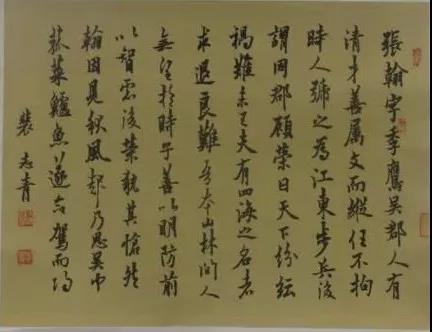 張翰字季鷹吳郡人有
清才善屬文而縱任不拘
時人號之為江東步兵後
謂同郡顧榮曰天下紛紜
禍難未已夫有四海之名者
求退良難吾本山林間人
無望於時子善以明防前
以智慮後榮執其愴然
翰因見秋風起乃思吳中
菰菜鱸魚遂命駕而歸
裴志青